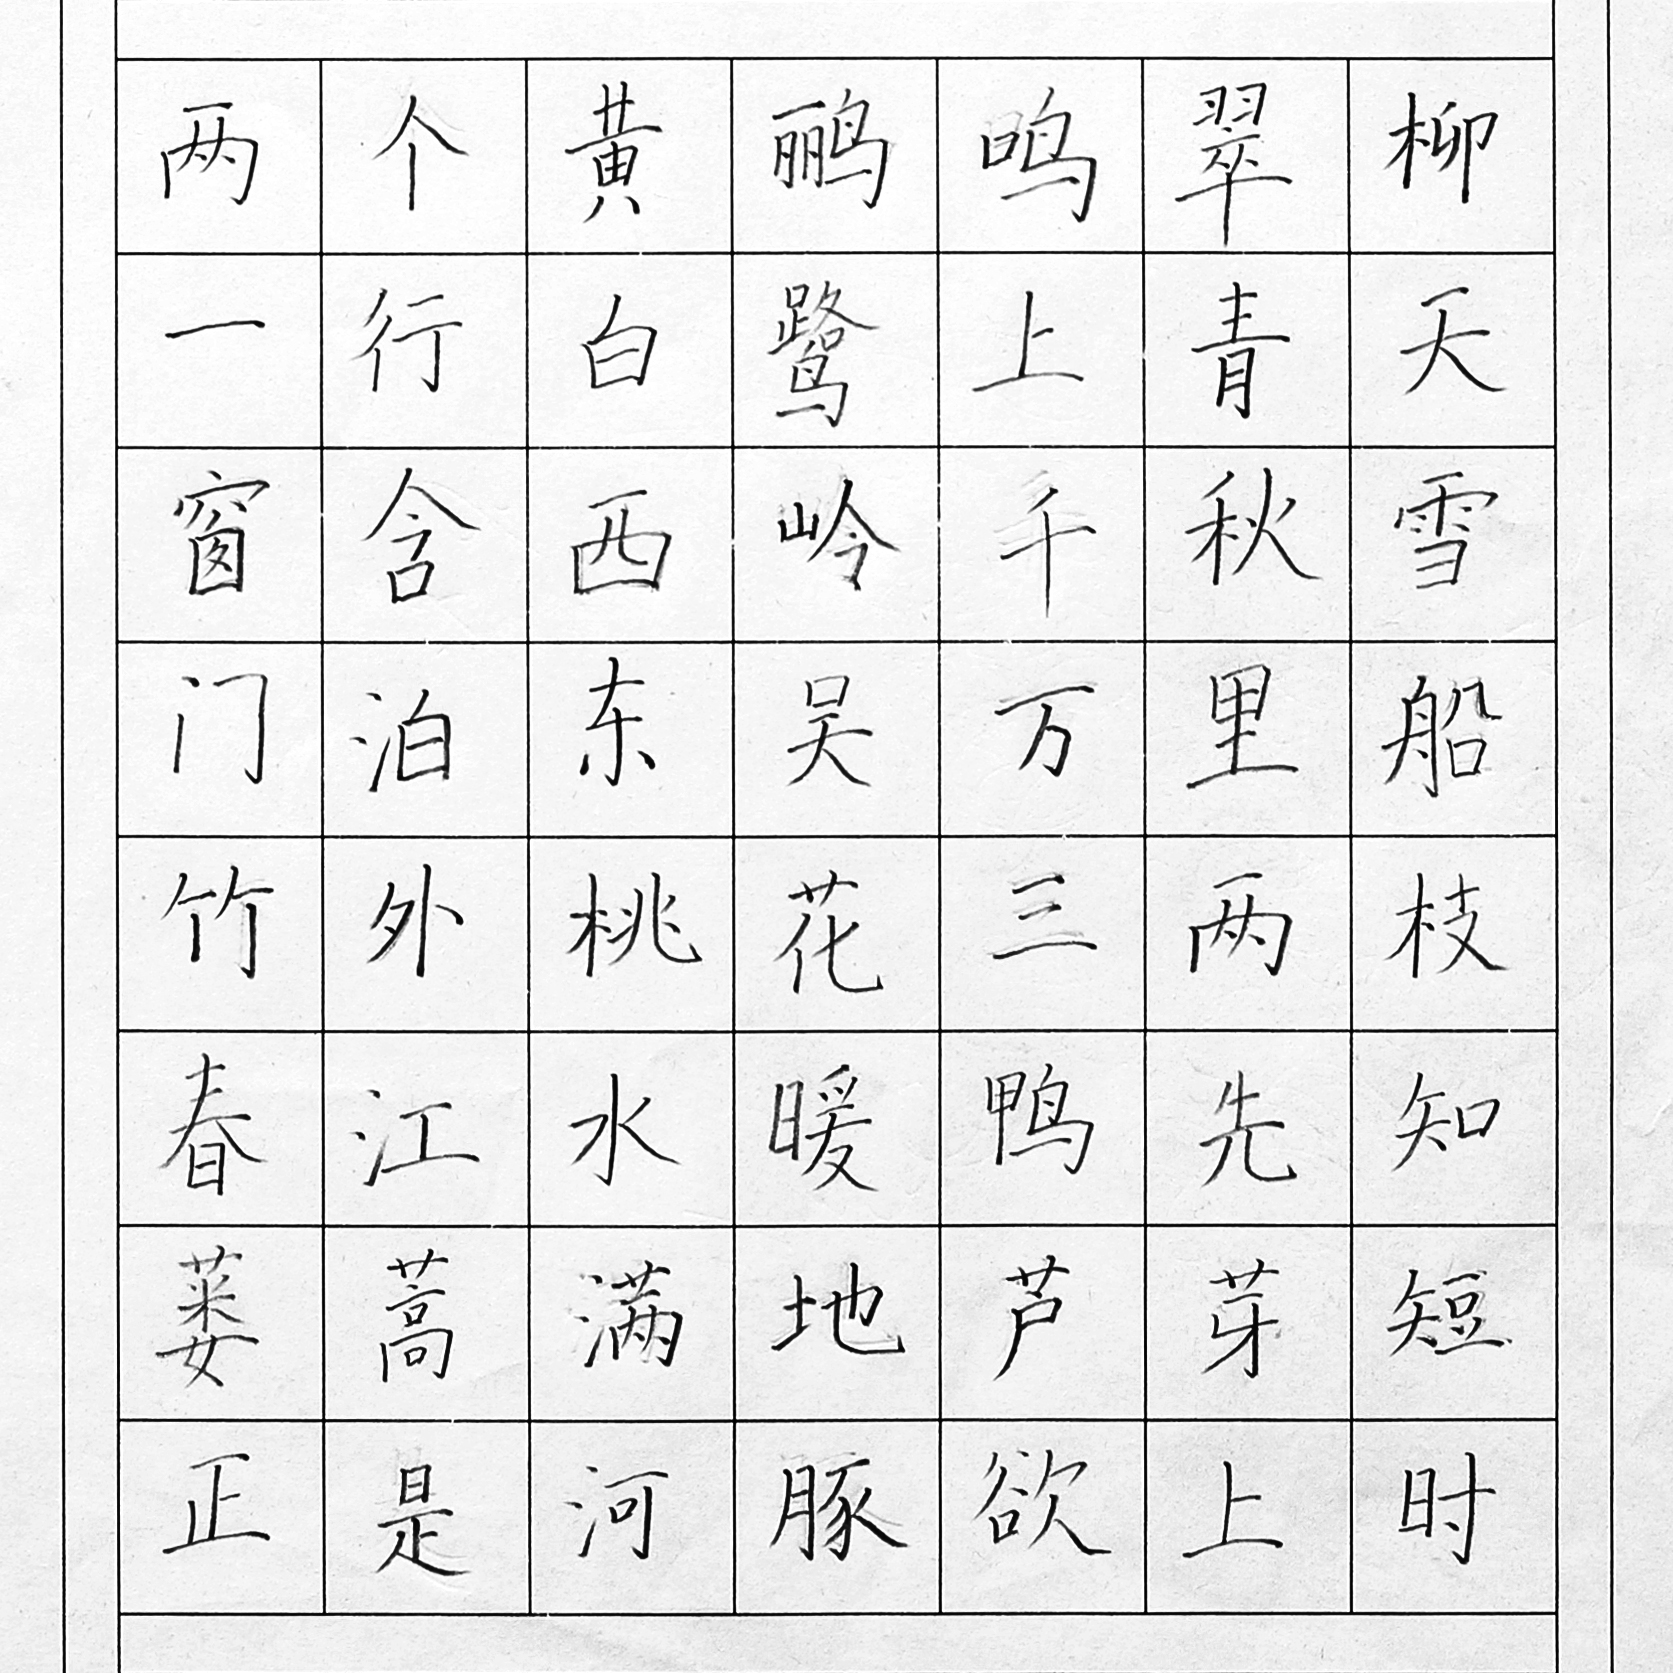 两个黄鹂鸣翠柳
一行白鹭上青天
窗含西岭千秋雪
门泊东吴万里船
竹外桃花三两枝
春江水暖鸭先知
蒌蒿满地芦芽短
正是河豚欲上时